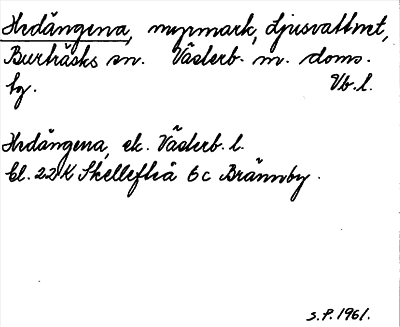 Hedängena, myrmark, Ljusvattnet,
Burträsks sn. Västerb. m. doms.
bg. Vb.l.
Hedängena, ek. Västerb. l.
bl. 22K Skellefteå 6c Brännby.
S.P. 1961.